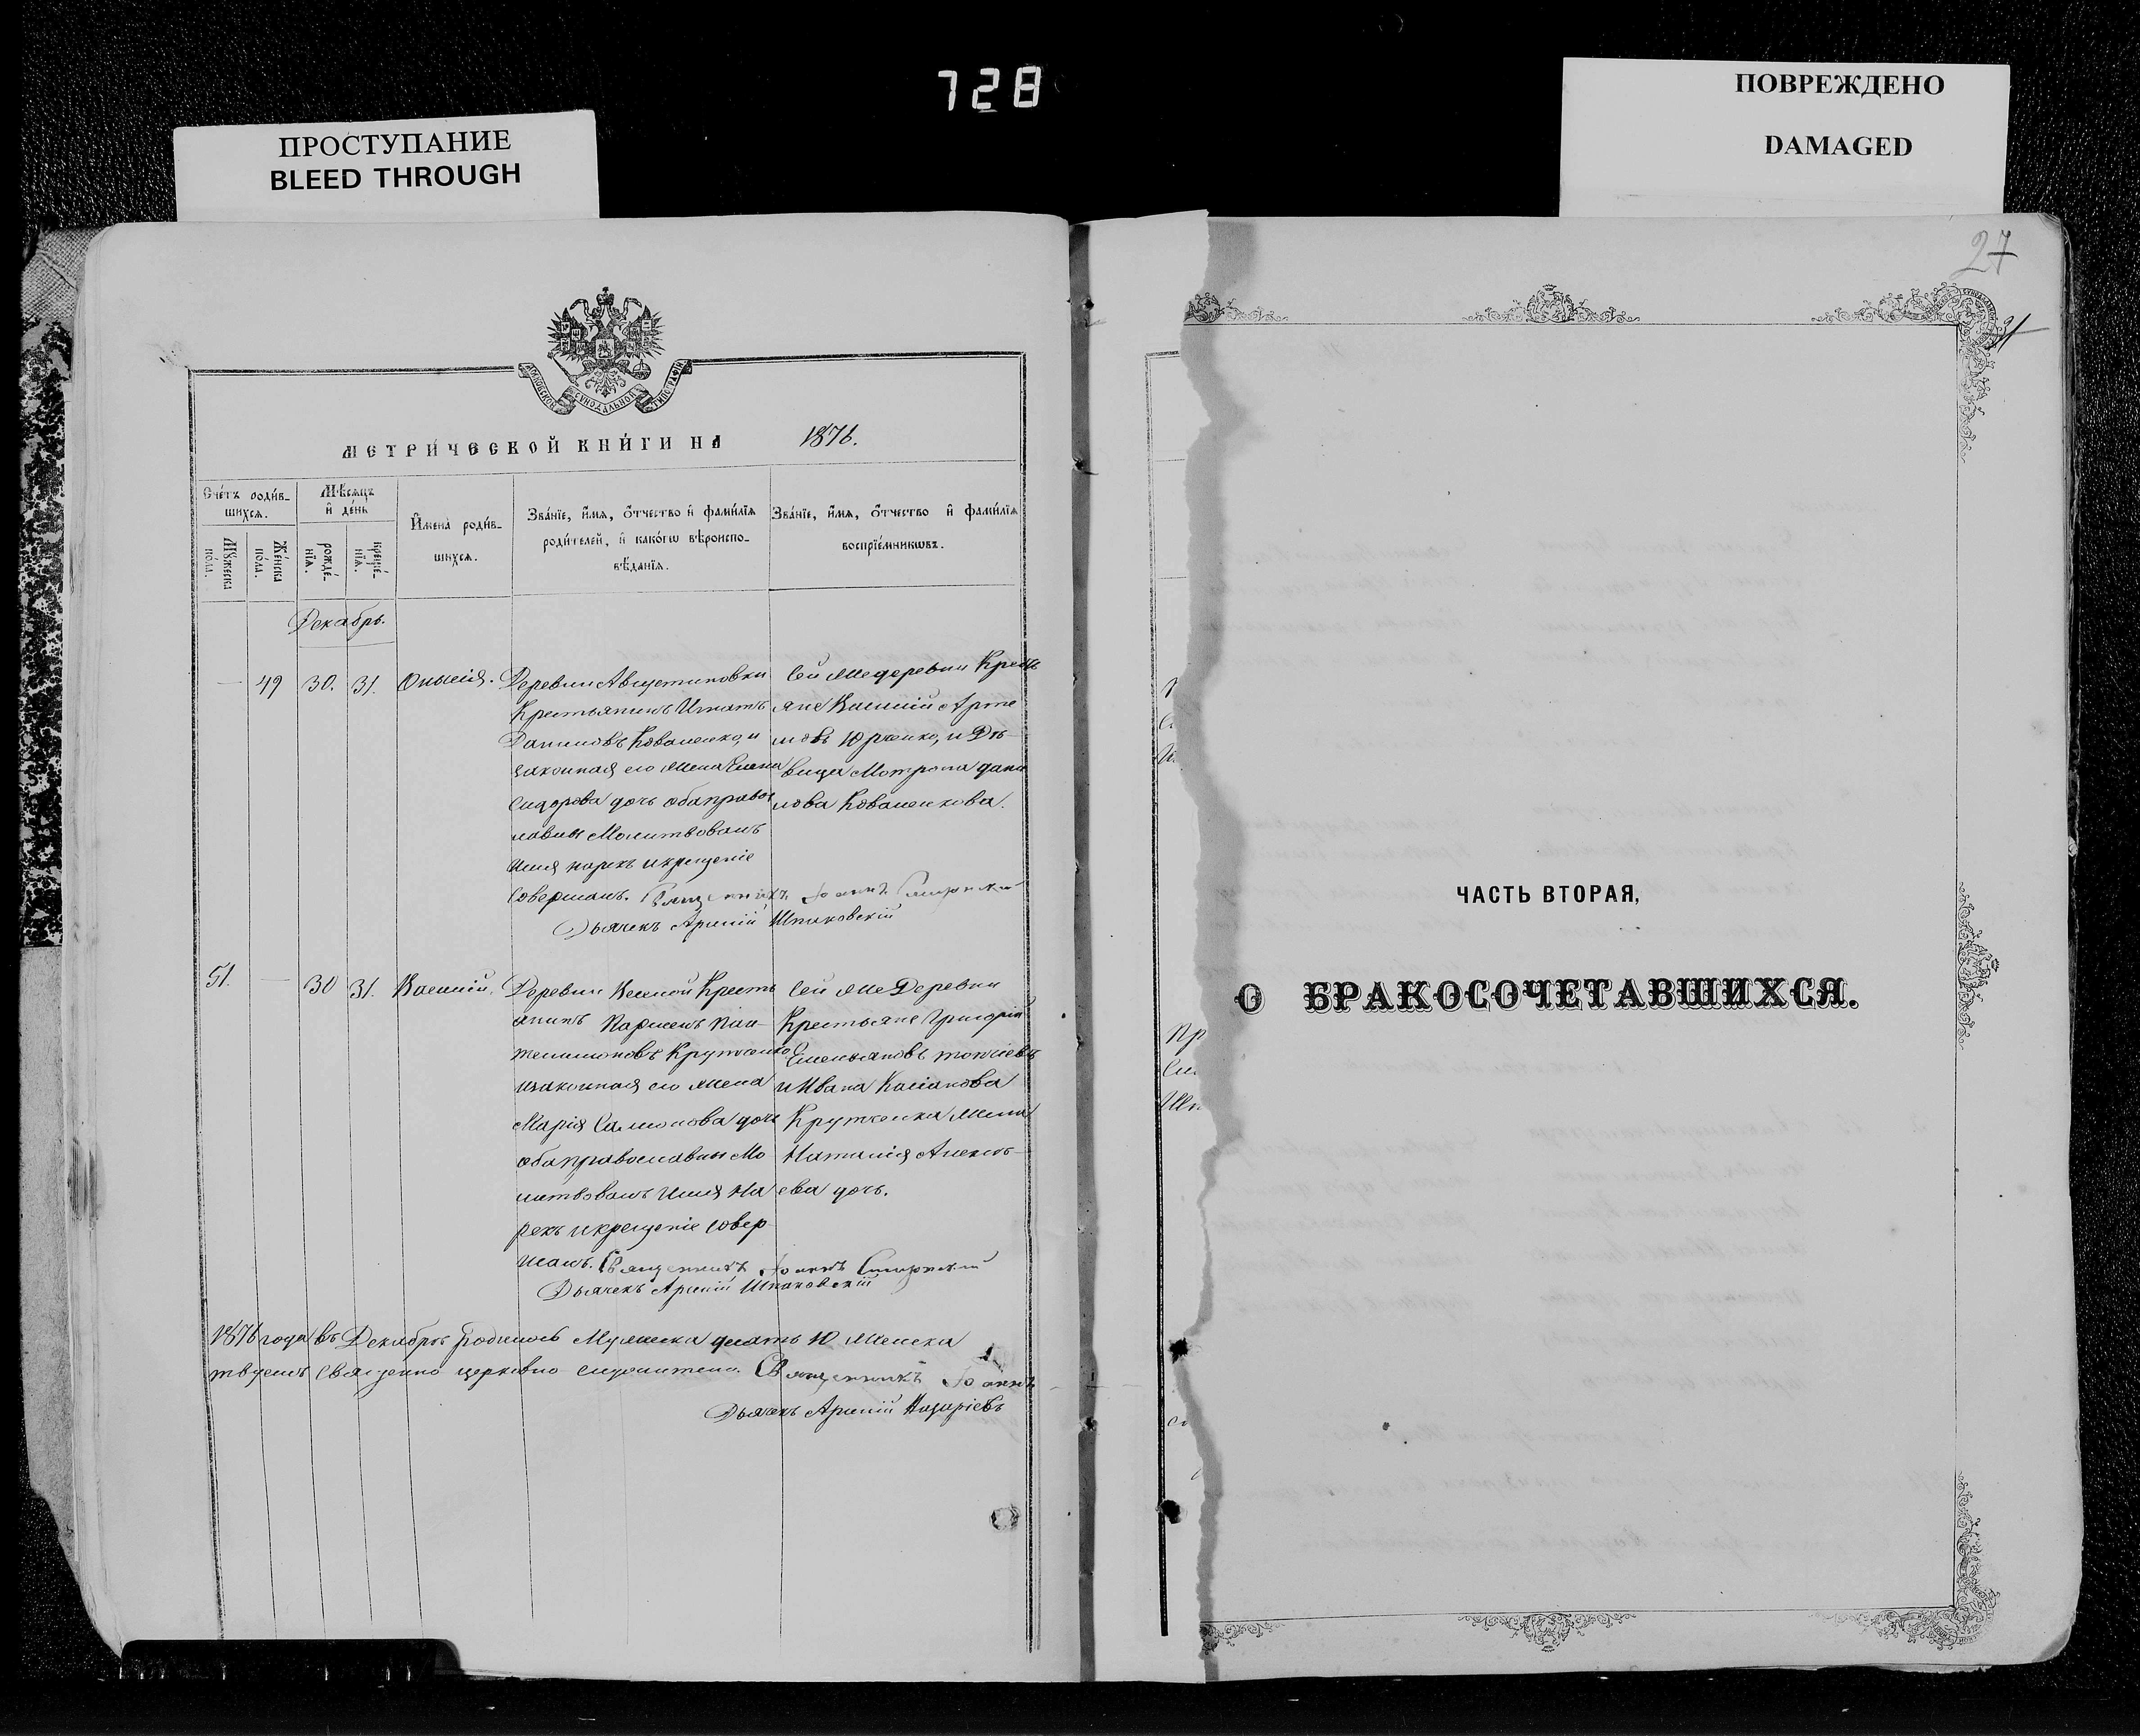 728
ПРОСТУПАНИЕ
BLEED THROUGH
ПОВРЕЖДЕНО
DAMAGED
МЕТРИ́ЧЕСКОЙ КНИ́ГИ НА 1876.
Сче́тъ роди́в-
шихсѧ.
Мѣ́сѧцъ
и҆ де́нь
Мꙋ́жеска
по́ла.
Же́нска
по́ла.
рожде́-
нїѧ.
креще́-
нїѧ.
И҆мена̀ роди́в-
шихсѧ.
Зва́нїе, и҆́мѧ, ѻ҆́тчество и҆ фами́лїѧ
роди́телей, и҆ како́гѡ вѣроиспо-
вѣ́данїѧ.
Зва́нїе, и҆́мѧ, ѻ҆́тчество и҆ фами́лїѧ
воспрїе́мникѡвъ.
Декабрь.
— 49 30. 31.
Деревни Августиновки
Крестьянинъ Игнатъ
Даниловъ Коваленко, и
законная его жена Елена
Сидорова дочь оба правос
лавны Молитвовалъ
имя нарекъ и крещеніе
совершалъ. Священникъ Іоаннъ
Дьячекъ Арсеній Шпаковскій
Сей же деревни Кресть
яне Василій Арте
мовъ Юрченко, и Дѣ
вица Мотрона Дани
лова Коваленкова.
51. — 30 31. Василій.
Деревни Кресть
янинъ
и законная его жена
Марія дочь
оба православны Мо
литвовалъ имя На
рекъ и крещеніе совер
шалъ. Священникъ Іоаннъ
Дьячекъ Арсеній Шпаковскій
Сей же Деревни
Крестьяне Григорій
Емельяновъ
и Ивана Касіанова
жена
Наталія Алексѣ
ева дочь.
1876 года въ Декабрѣ Родилось Мужеска женска
церковно Священникъ Іоаннъ
Дьячекъ Арсеній
27
31
ЧАСТЬ ВТОРАЯ,
О БРАКОСОЧЕТАВШИХСЯ.